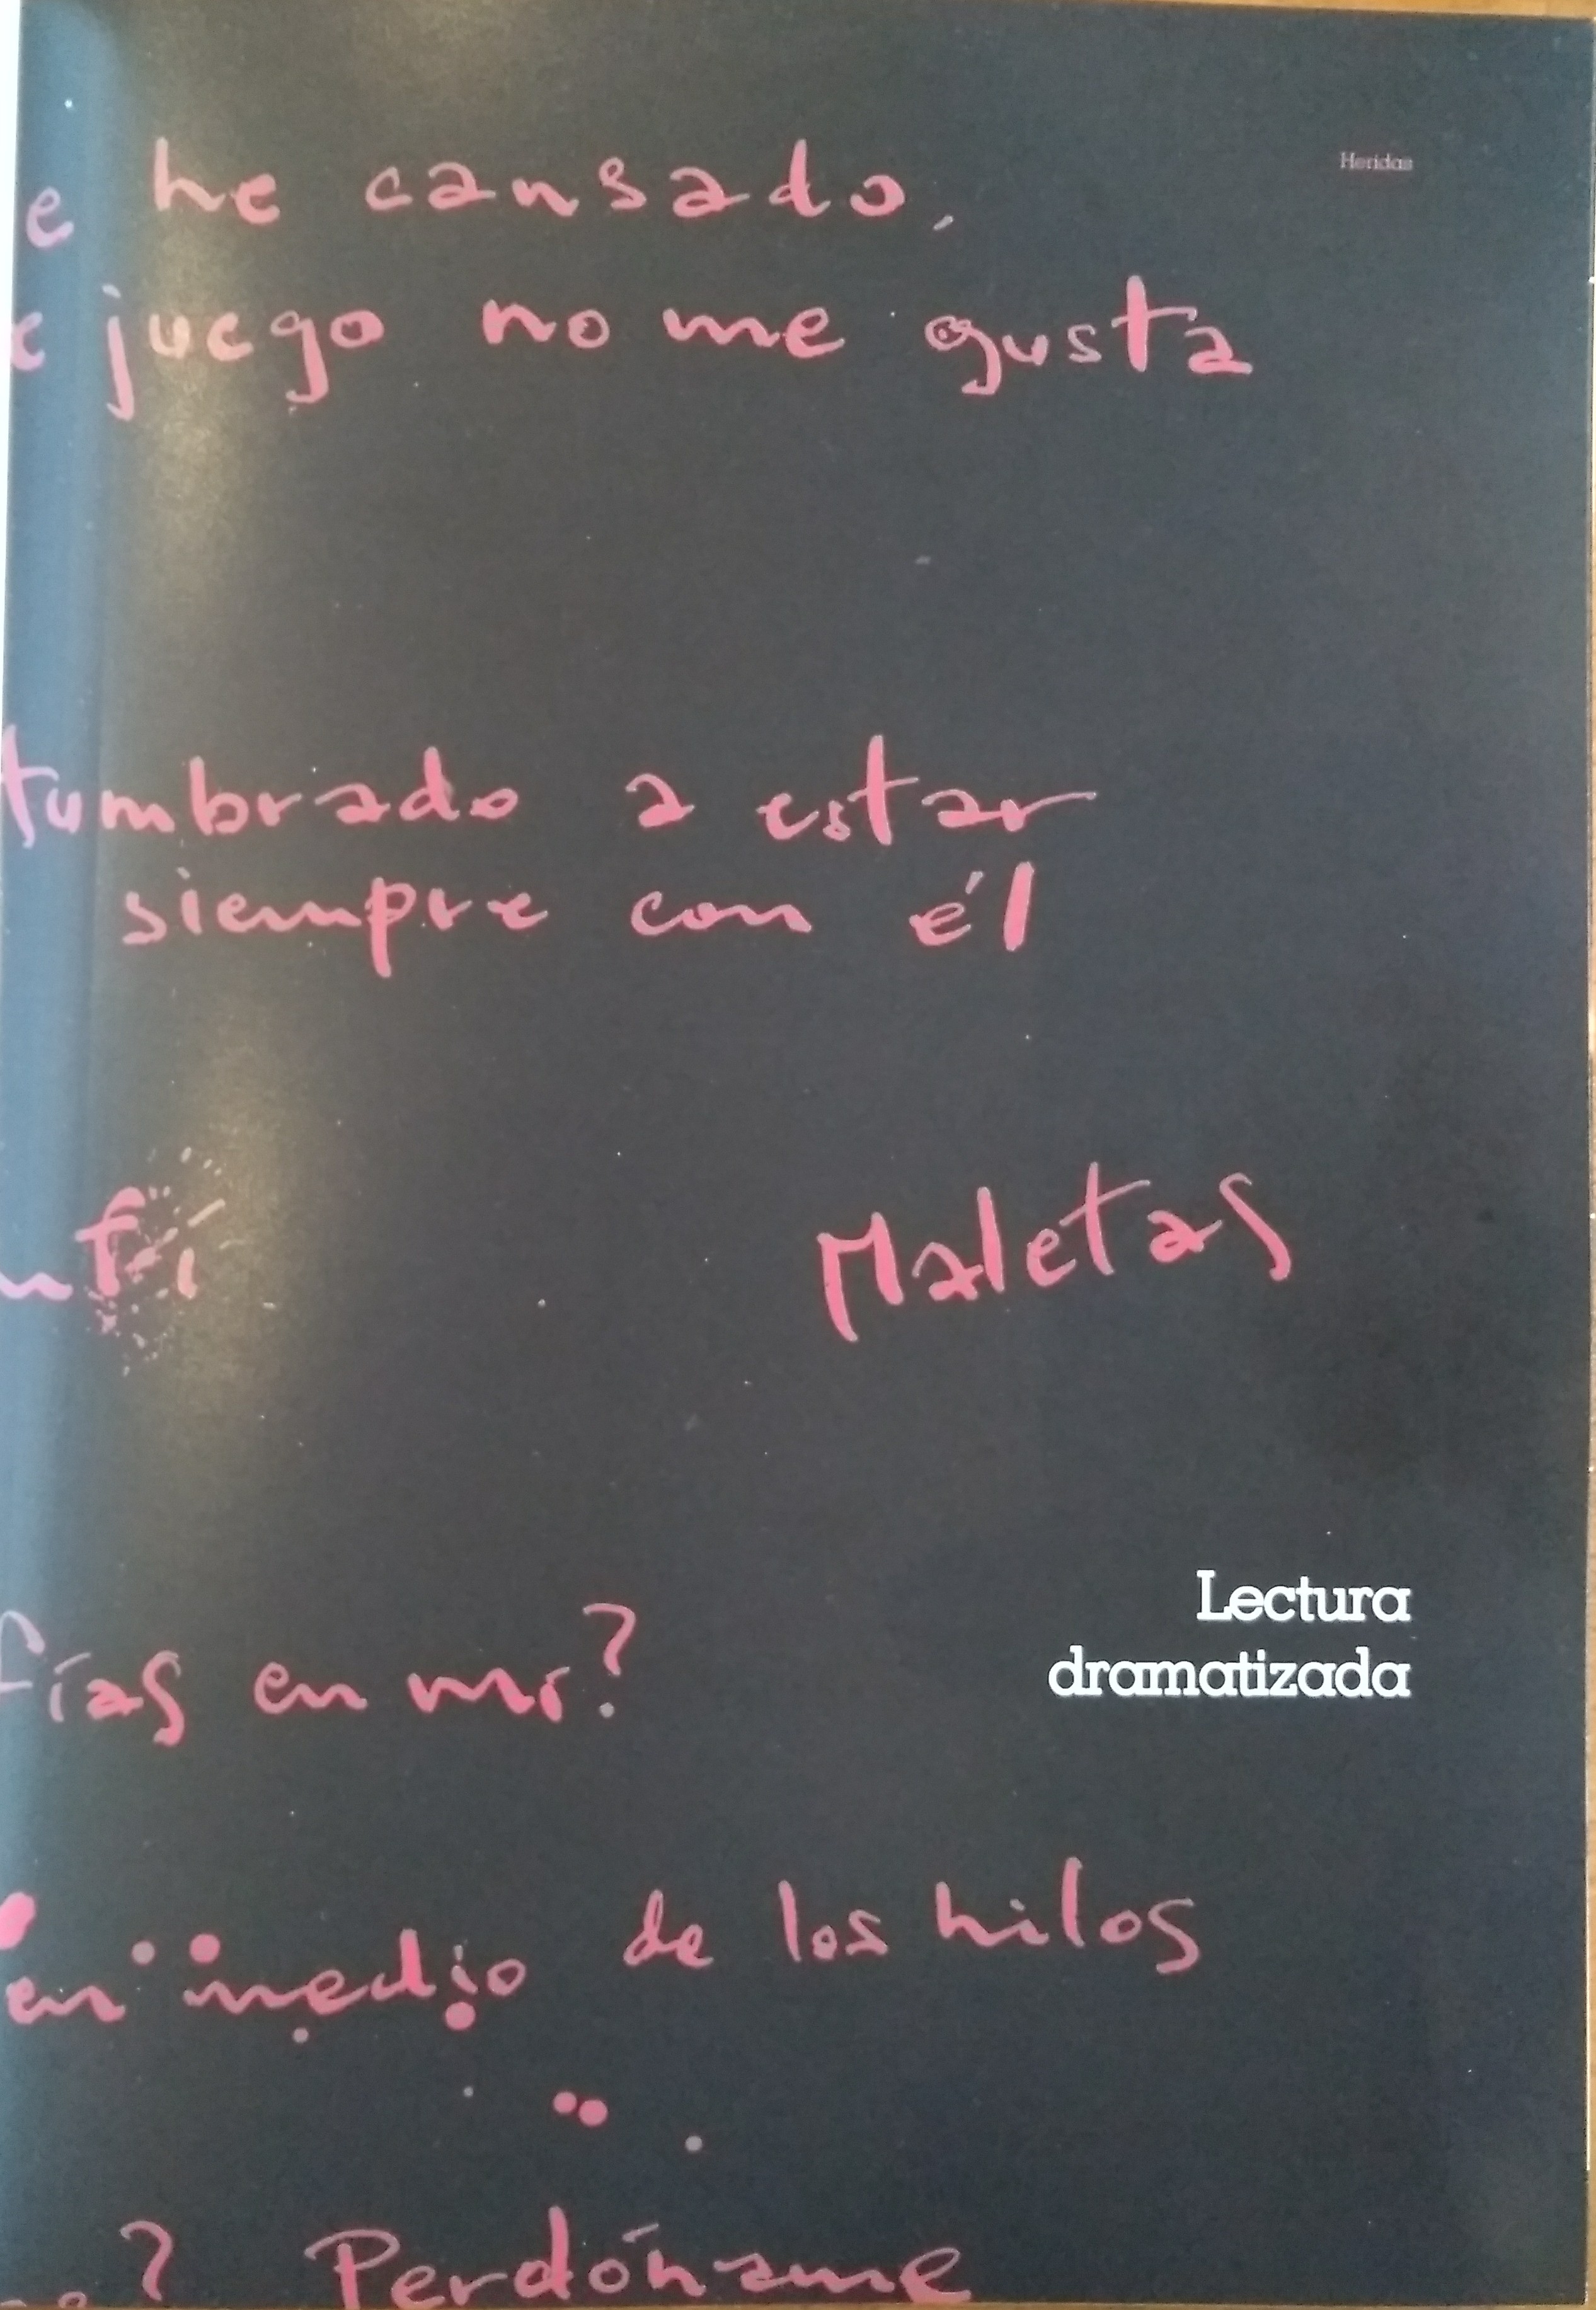 Heridas
e he cansado,
e juego no me gusta
tumbrado a estar
siempre con él
Maletas
fías en mí?
Lectura
dramatizada
en medio de los hilos
? Perdóname